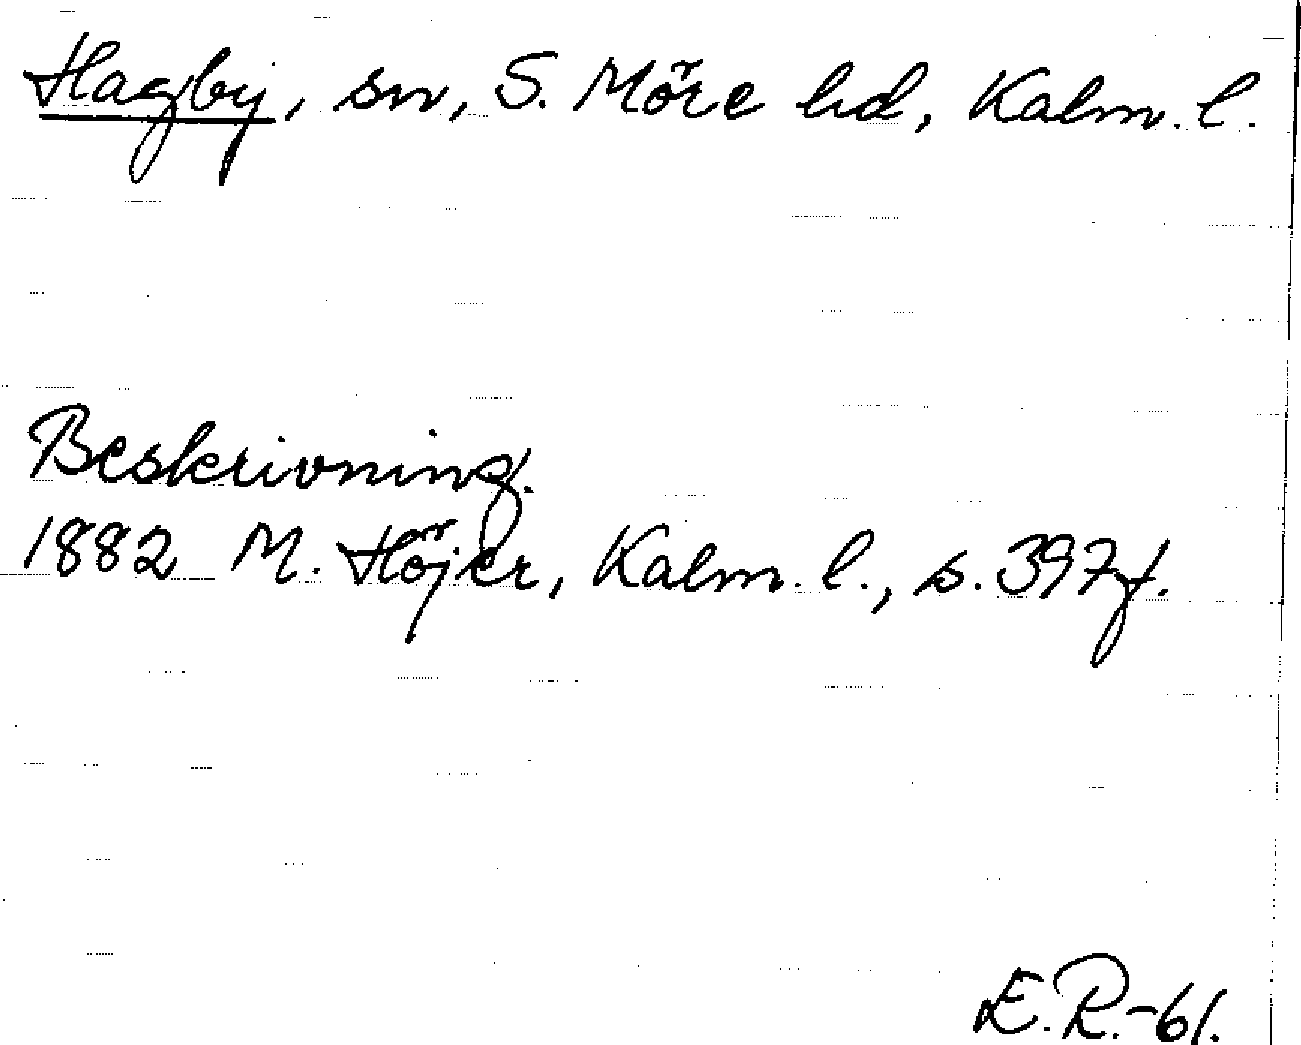 Hagby, sn, S. Möre hd, Kalm. l.
Beskrivning.
1882 M. Höjer, Kalm. l., s. 397f.
E.R.-61.